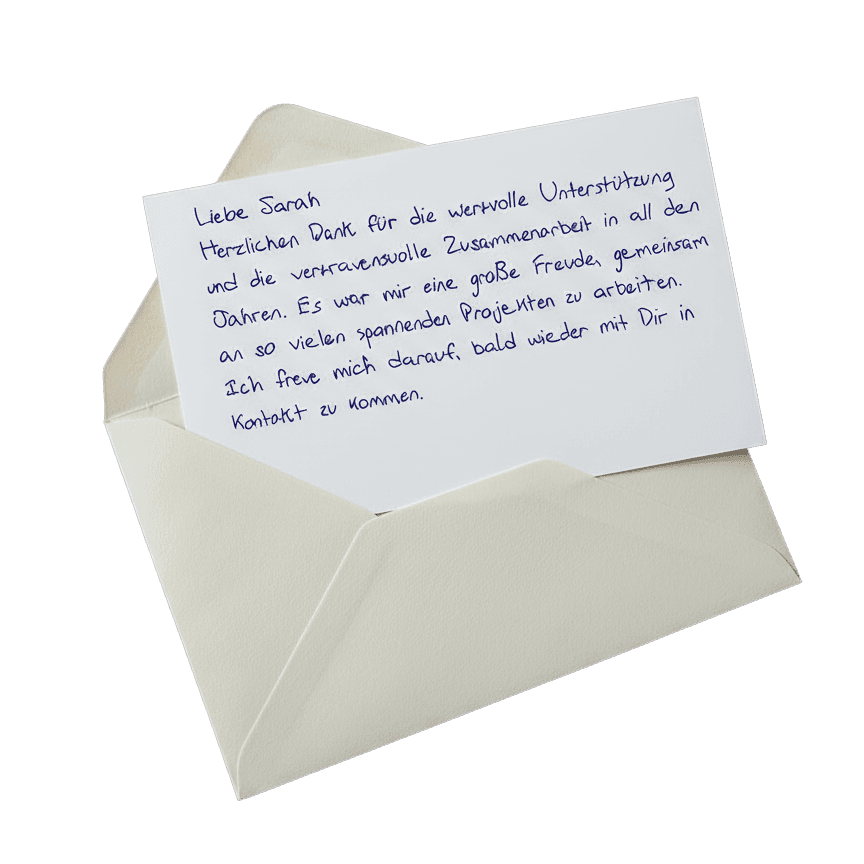 Liebe Sarah
Herzlichen Dank für die wertvolle Unterstützung
und die vertrauensvolle Zusammenarbeit in all den
Jahren. Es war mir eine große Freude, gemeinsam
an so vielen spannenden Projekten zu arbeiten.
Ich freue mich darauf, bald wieder mit Dir in
Kontakt zu kommen.